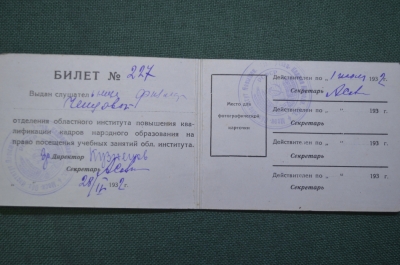 БИЛЕТ № 227
Выдан слушател
отделения областного института повышения ква-
лификации кадров народного образования на
право посещения учебных занятий обл. института.
Директор Кузнецов
Секретарь
28/IV 1932 г.
Место для
фотографической
карточки
Действителен по „ 1 июля 1932
Секретарь
Действителен по „ “ 193 г.
Секретарь
Действителен по „ “ 193 г.
Секретарь
Действителен по „ “ 193 г.
Секретарь
Действителен по „ “ 193 г.